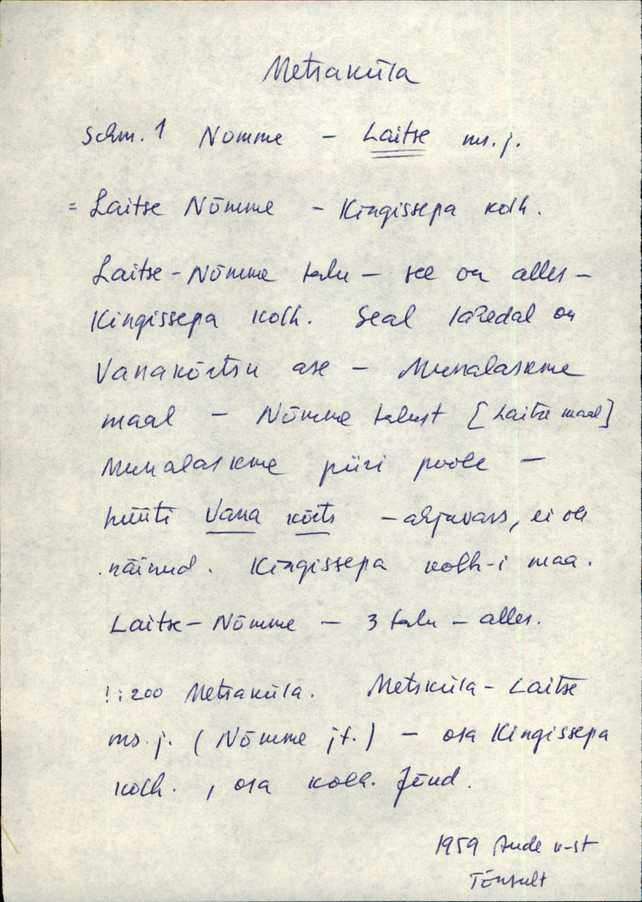 Metsaküla
Schm. 1 Nõmme - Laitse ms. j.
= Laitse Nõmme - Kingissepa kolh.
Laitse-Nõmme talu - see on alles -
Kingissepa kolh. Seal lähedal on
Vanakõrtsu ase - Munalaskme
maal - Nõmme talust [Laitse maal]
Munalaskme piiri poole -
hüüti Vana kõrts - ei ole
näinud. Kingissepa kolh-i maa.
Laitse-Nõmme - 3 talu - alles.
!: 200 Metsaküla. Metsküla - Laitse
ms. j. (Nõmme jt.) - osa Kingissepa
kolh., osa kolh. Jõud.
1959 Aude v-st